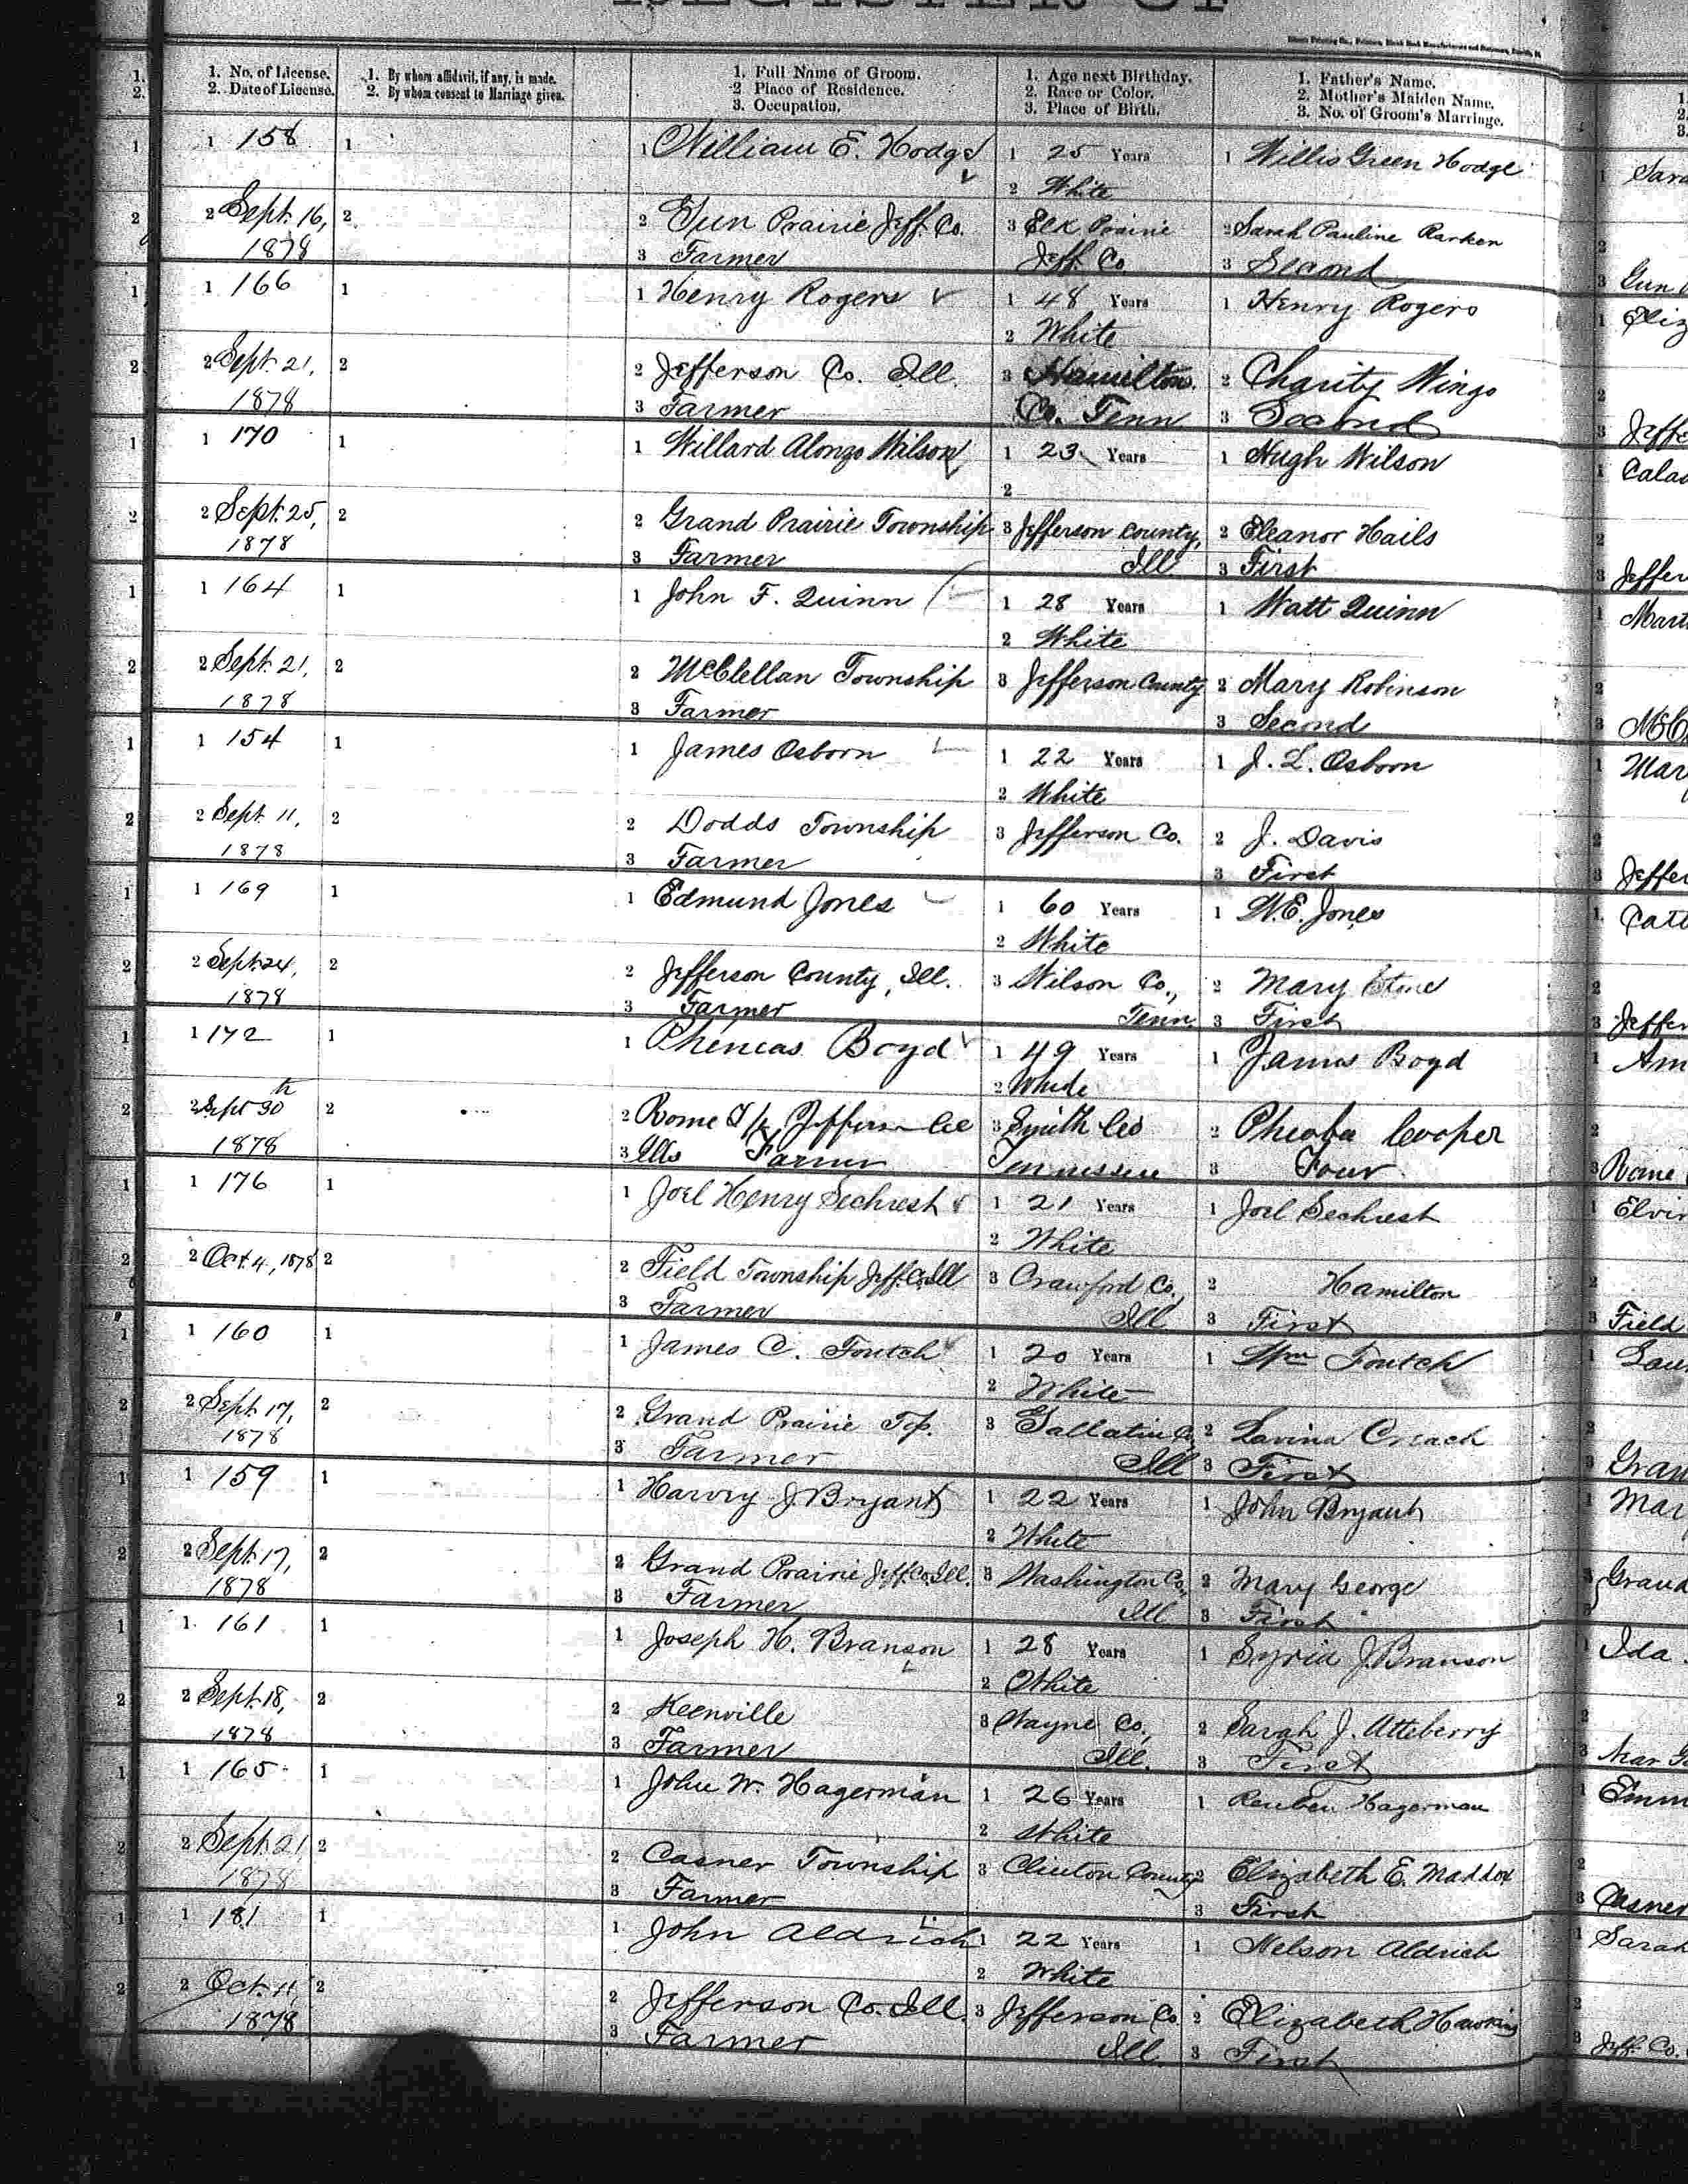 REGISTER OF
1. No. of License.
2. Date of License.
1. By whom affidavit, if any, is made.
2. By whom consent to Marriage given.
1. Full Name of Groom.
2 Place of Residence.
3. Occupation.
1. Age next Birthday.
2. Race or Color.
3. Place of Birth.
1. Father's Name.
2. Mother's Maiden Name.
3. No. of Groom's Marriage.
1 158 1 1 William E. Hodge 1 25 Years 1 Willis Green Hodge
2 White
2 Sept. 16, 2 2 Gun Prairie Jeff. Co. 3 Elk Prairie 2 Sarah Pauline
1878 3 Farmer Jeff. Co 3 Second
1 166 1 1 Henry Rogers 1 48 Years 1 Henry Rogers
2 White
2 Sept. 21, 2 2 Jefferson Co. Ill. 3 Hamilton 2 Charity Wingo
1878 3 Farmer Co. Tenn 3 Second
1 170 1 1 Willard Alonzo Wilson 1 23 Years 1 Hugh Wilson
2
2 Sept. 25, 2 2 Grand Prairie Township 3 Jefferson County, 2 Eleanor Hails
1878 3 Farmer Ill. 3 First
1 164 1 1 John F. Quinn 1 28 Years 1 Watt Quinn
2 White
2 Sept. 21, 2 2 McClellan Township 3 Jefferson County 2 Mary Robinson
1878 3 Farmer 3 Second
1 154 1 1 James Osborn 1 22 Years 1 J. L. Osborn
2 White
2 Sept. 11, 2 2 Dodds Township 3 Jefferson Co. 2 J. Davis
1878 3 Farmer 3 First
1 169 1 1 Edmund Jones 1 60 Years 1 W. E. Jones
2 White
2 Sept. 24, 2 2 Jefferson County, Ill. 3 Wilson Co., 2 Mary
1878 3 Farmer Tenn 3 First
1 172 1 1 Phineas Boyd 1 49 Years 1 James Boyd
2 White
2 Sept 30th 2 2 Rome T/p, Jefferson Co 3 Smith Co 2 Pheoba Cooper
1878 3 Ills Farmer Tennessee 3 Four
1 176 1 1 Joel Henry Sechrest 1 21 Years 1 Joel Sechrest
2 White
2 Oct. 4, 1878 2 2 Field Township Jeff. Co. Ill 3 Crawford Co., 2 Hamilton
3 Farmer Ill 3 First
1 160 1 1 James C. Foutch 1 20 Years 1 Wm Foutch
2 White
2 Sept. 17, 2 2 Grand Prairie Tp. 3 Gallatin Co, 2 Lavina Creach
1878 3 Farmer Ill 3 First
1 159 1 1 Harvy J Bryant 1 22 Years 1 John Bryant
2 White
2 Sept. 17, 2 2 Grand Prairie Jeff. Co. Ill. 3 Washington Co., 2 Mary George
1878 3 Farmer Ill 3 First
1. 161 1 1 Joseph H. Branson 1 28 Years 1 J. Branson
2 White
2 Sept. 18, 2 2 Keenville 3 Wayne Co., 2 Sarah J. Atteberry
1878 3 Farmer Ill. 3 First
1 165 1 1 John W. Hagerman 1 26 Years 1 Reuben Hagerman
2 White
2 Sept. 21 2 2 Casner Township 3 Clinton County 2 Elizabeth E. Maddox
1878 3 Farmer 3 First
1 181 1 1 John Aldrich 1 22 Years 1 Nelson Aldrich
2 White
2 Oct. 11, 2 2 Jefferson Co. Ill. 3 Jefferson Co. 2 Elizabeth Hawkins
1878 3 Farmer Ill. 3 First